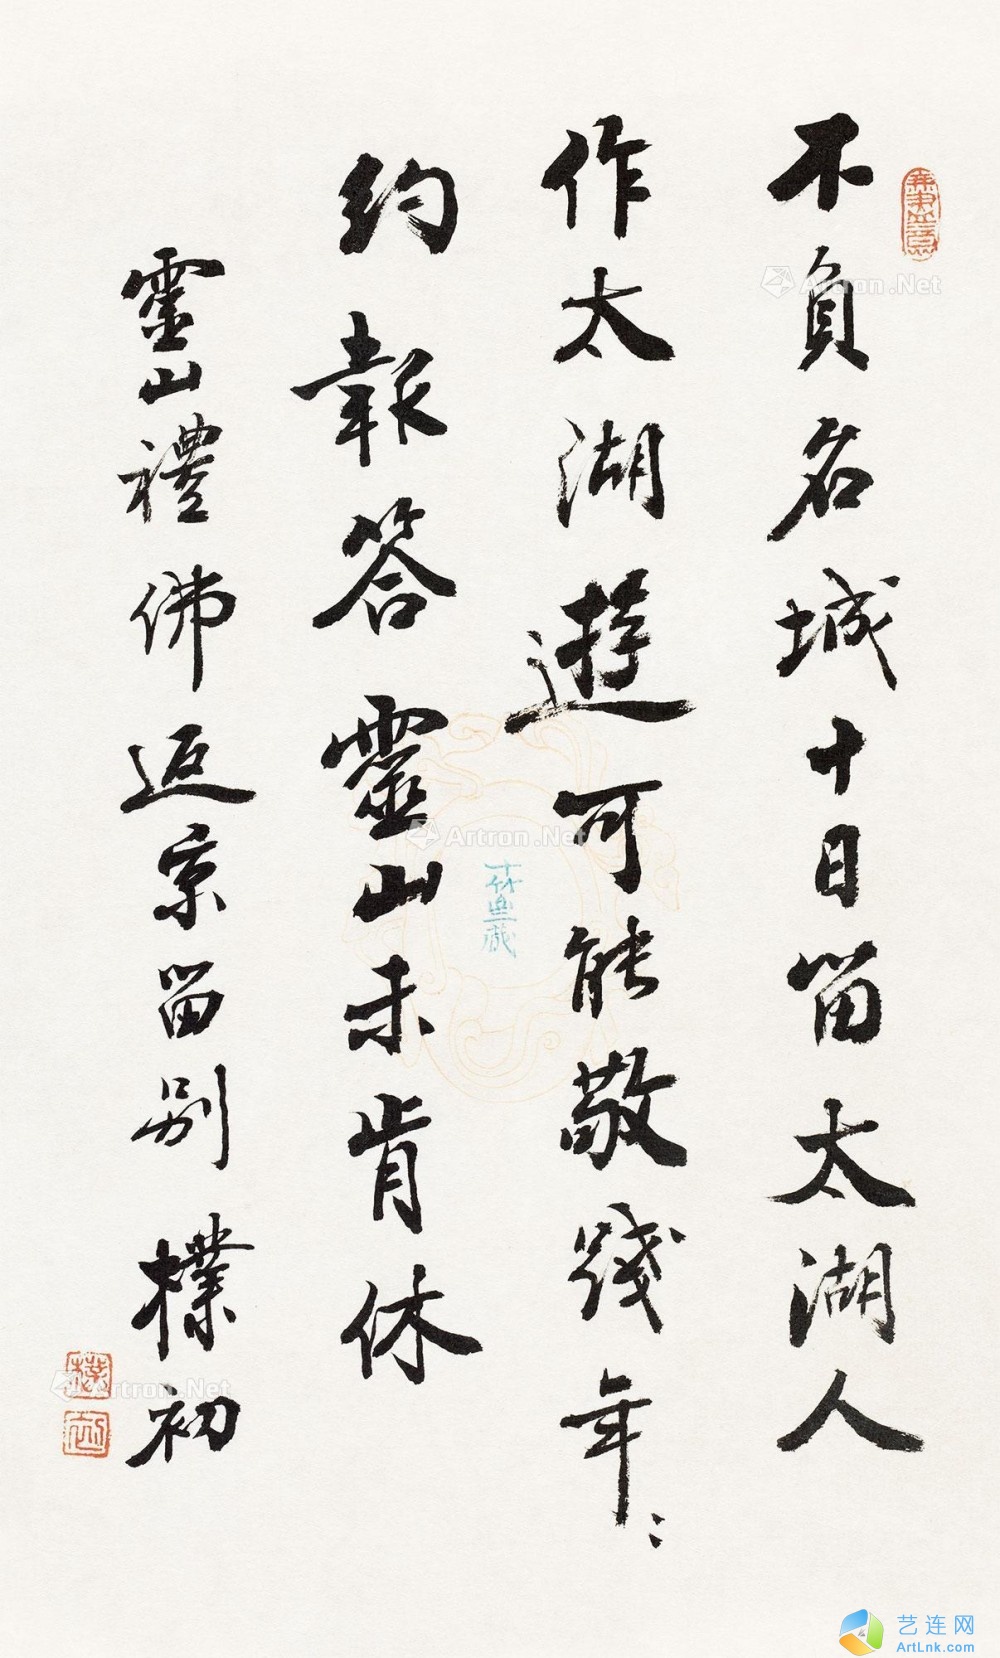 不負名城十日留太湖人
作太湖遊可能敬踐年〻
約報答靈山未肯休
靈山禮佛返京留別 樸初
樸初
Artron.Net
Artron.Net
Artron.Net
艺连网
ArtLnk.com